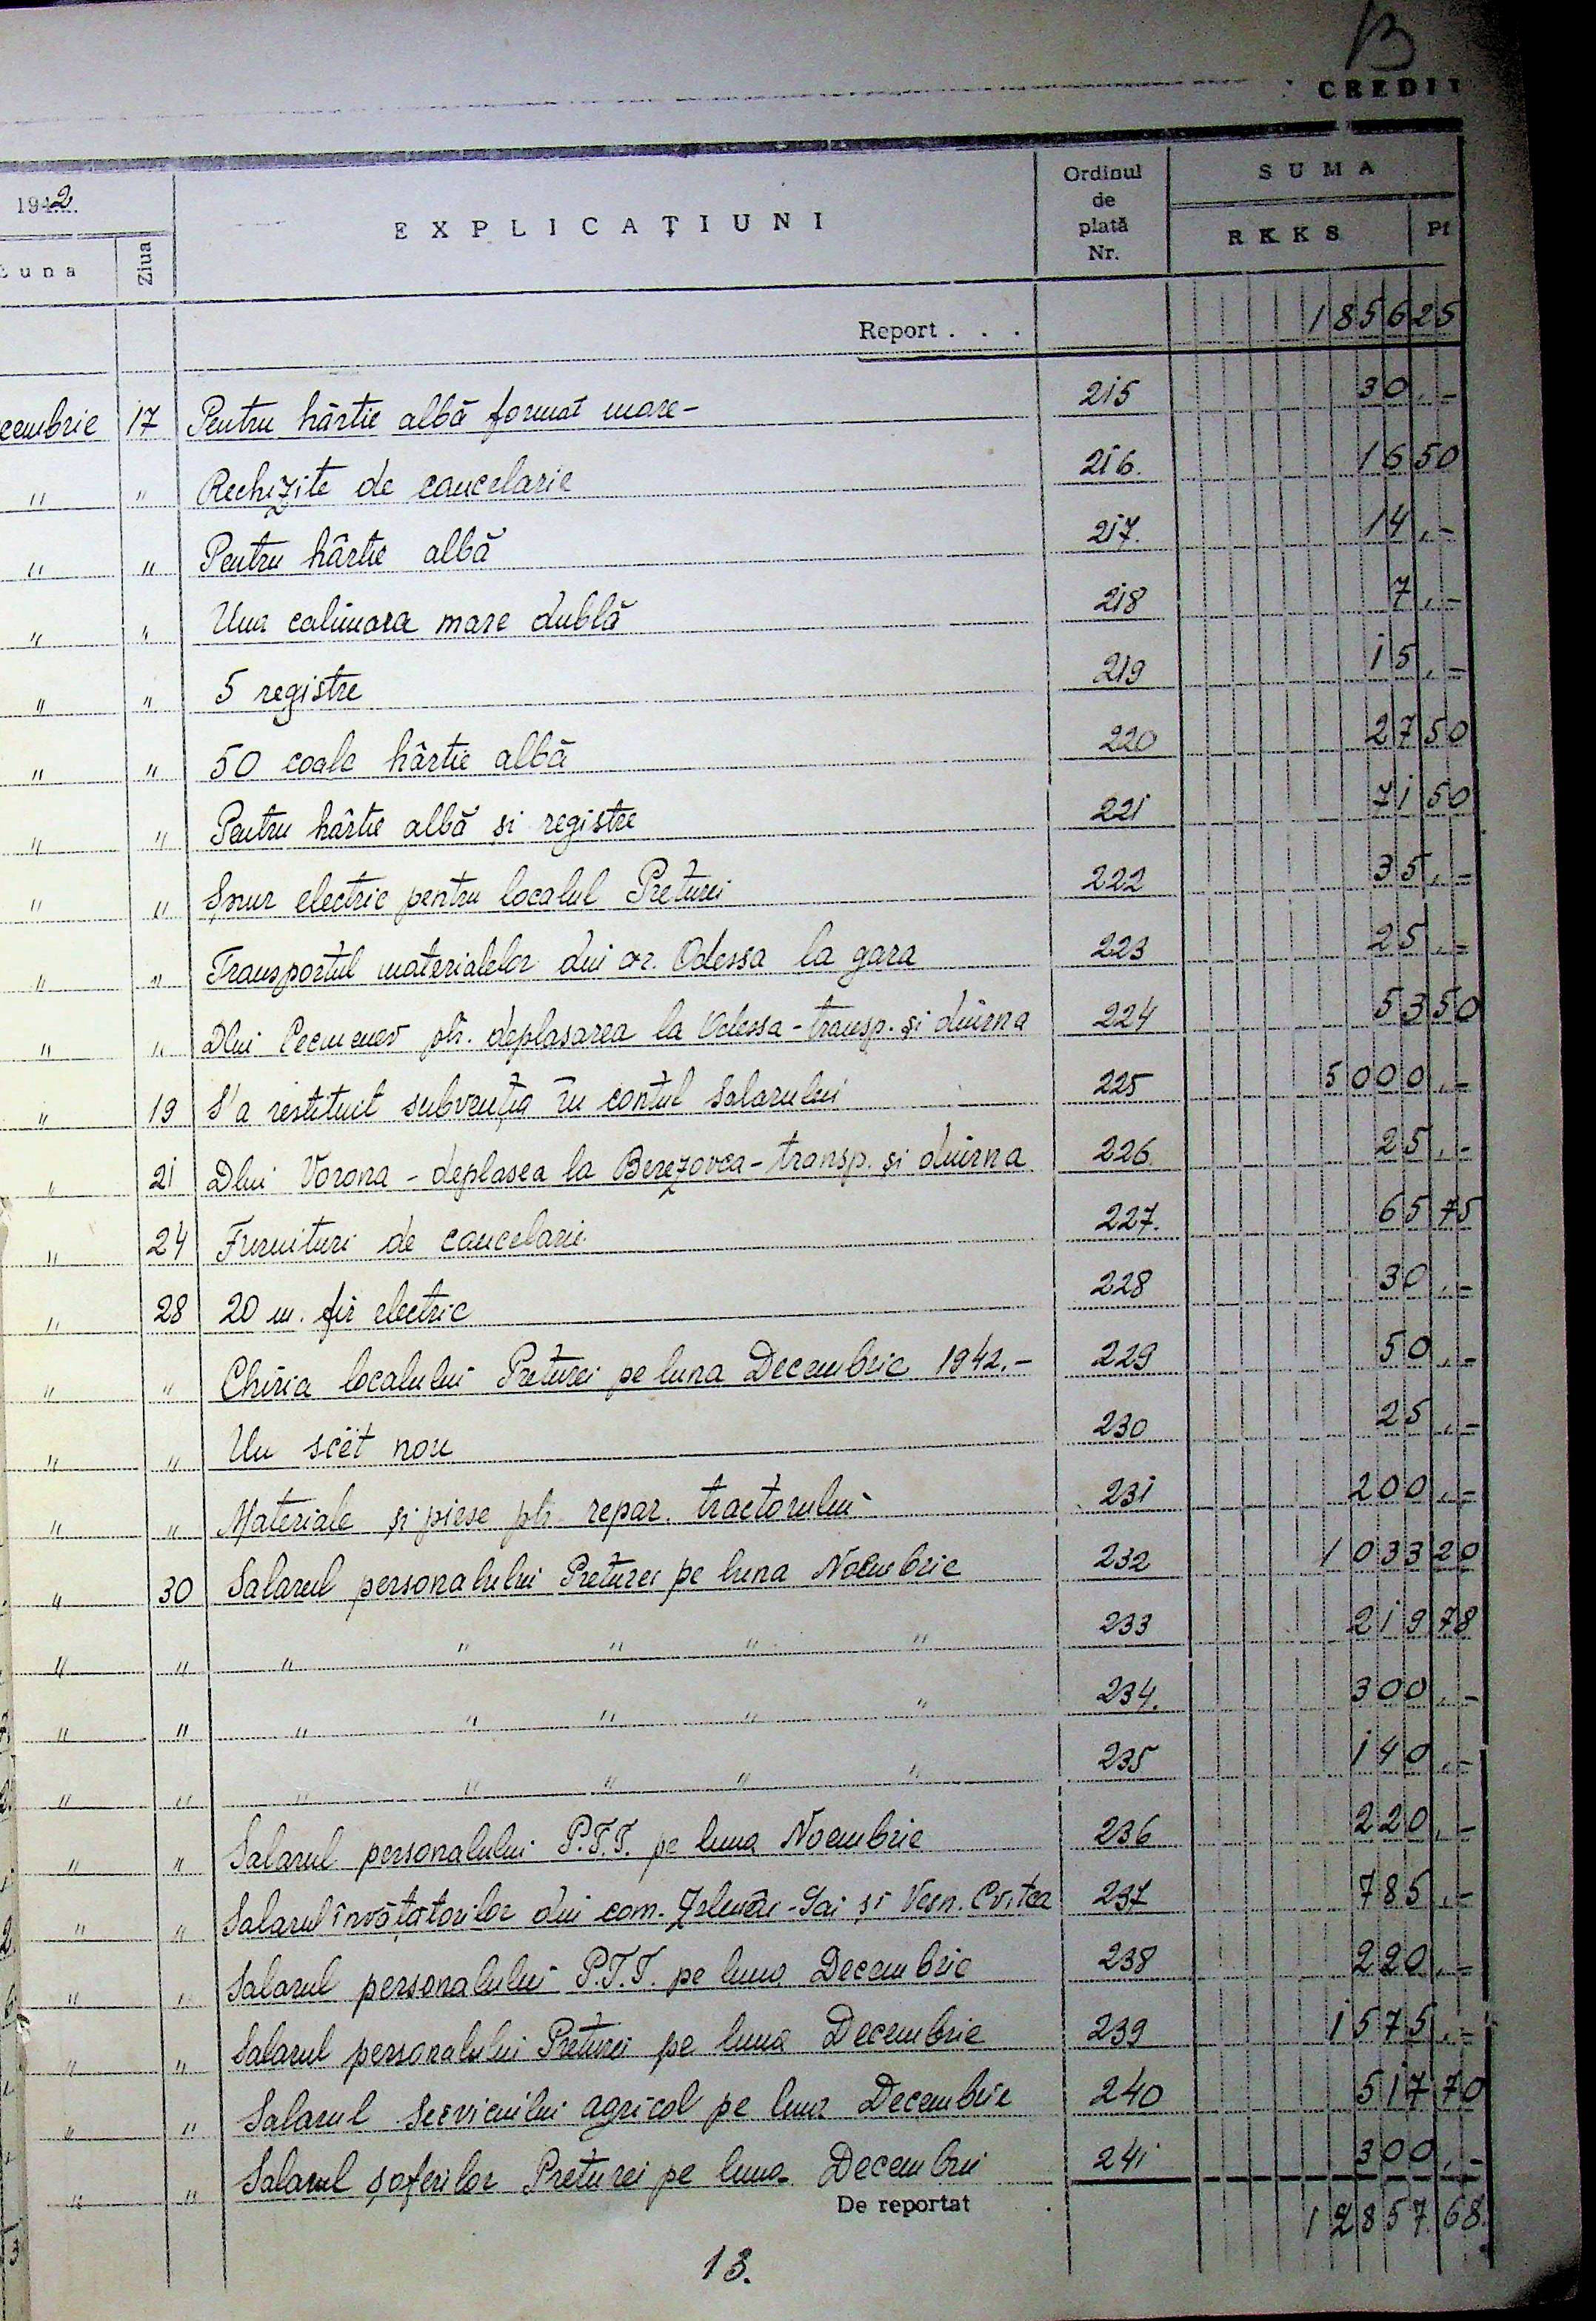 13
CREDIT
1942
Luna Ziua EXPLICAȚIUNI Ordinul de plată Nr. SUMA RKKS Pf
Report . . . 1856 25
cembrie 17 Pentru hârtie albă format mare - 215 30 , -
" " Rechizite de cancelarie 216. 16 50
" " Pentru hârtie albă 217. 14 , -
" " Una calimara mare dublă 218 7 , -
" " 5 registre 219 15 , -
" " 50 coale hârtie albă 220 27 50
" " Pentru hârtie albă și registre 221 71 50
" " Șnur electric pentru localul Preturei 222 35 , -
" " Transportul materialelor din or. Odessa la gara 223 25 , -
" " Dlui ptr. deplasarea la Odessa - transp. și diurna 224 53 50
" 19 S'a restituit subvenția în contul Salarului 225 5000 , -
" 21 Dlui Vorona - deplasea la Berezovca - transp. și diurna 226. 25 , -
" 24 Furnituri de cancelarie 227. 65 75
" 28 20 m. fir electric 228 30 , -
" " Chiria localului Preturei pe luna Decembrie 1942.- 229 50 , -
" " Un scët nou 230 25 , -
" " Materiale și piese ptr. repar. tractorului 231 200 , -
" 30 Salarul personalului Preturei pe luna Noembrie 232 1033 20
" " " " " " " 233 219 78
" " " " " " " 234. 300 , -
" " " " " " " 235 140 , -
" " Salarul personalului P.T.T. pe luna Noembrie 236 220 , -
" " Salarul învățătorilor din com. și 237 785 , -
" " Salarul personalului P.T.T. pe luna Decembrie 238 220 , -
" " Salarul personalului Preturei pe luna Decembrie 239 1575 , -
" " Salarul Serviciului agricol pe luna Decembrie 240 517 70
" " Salarul șoferilor Preturei pe luna Decembrie 241 300 , -
De reportat 12857.68.
13.